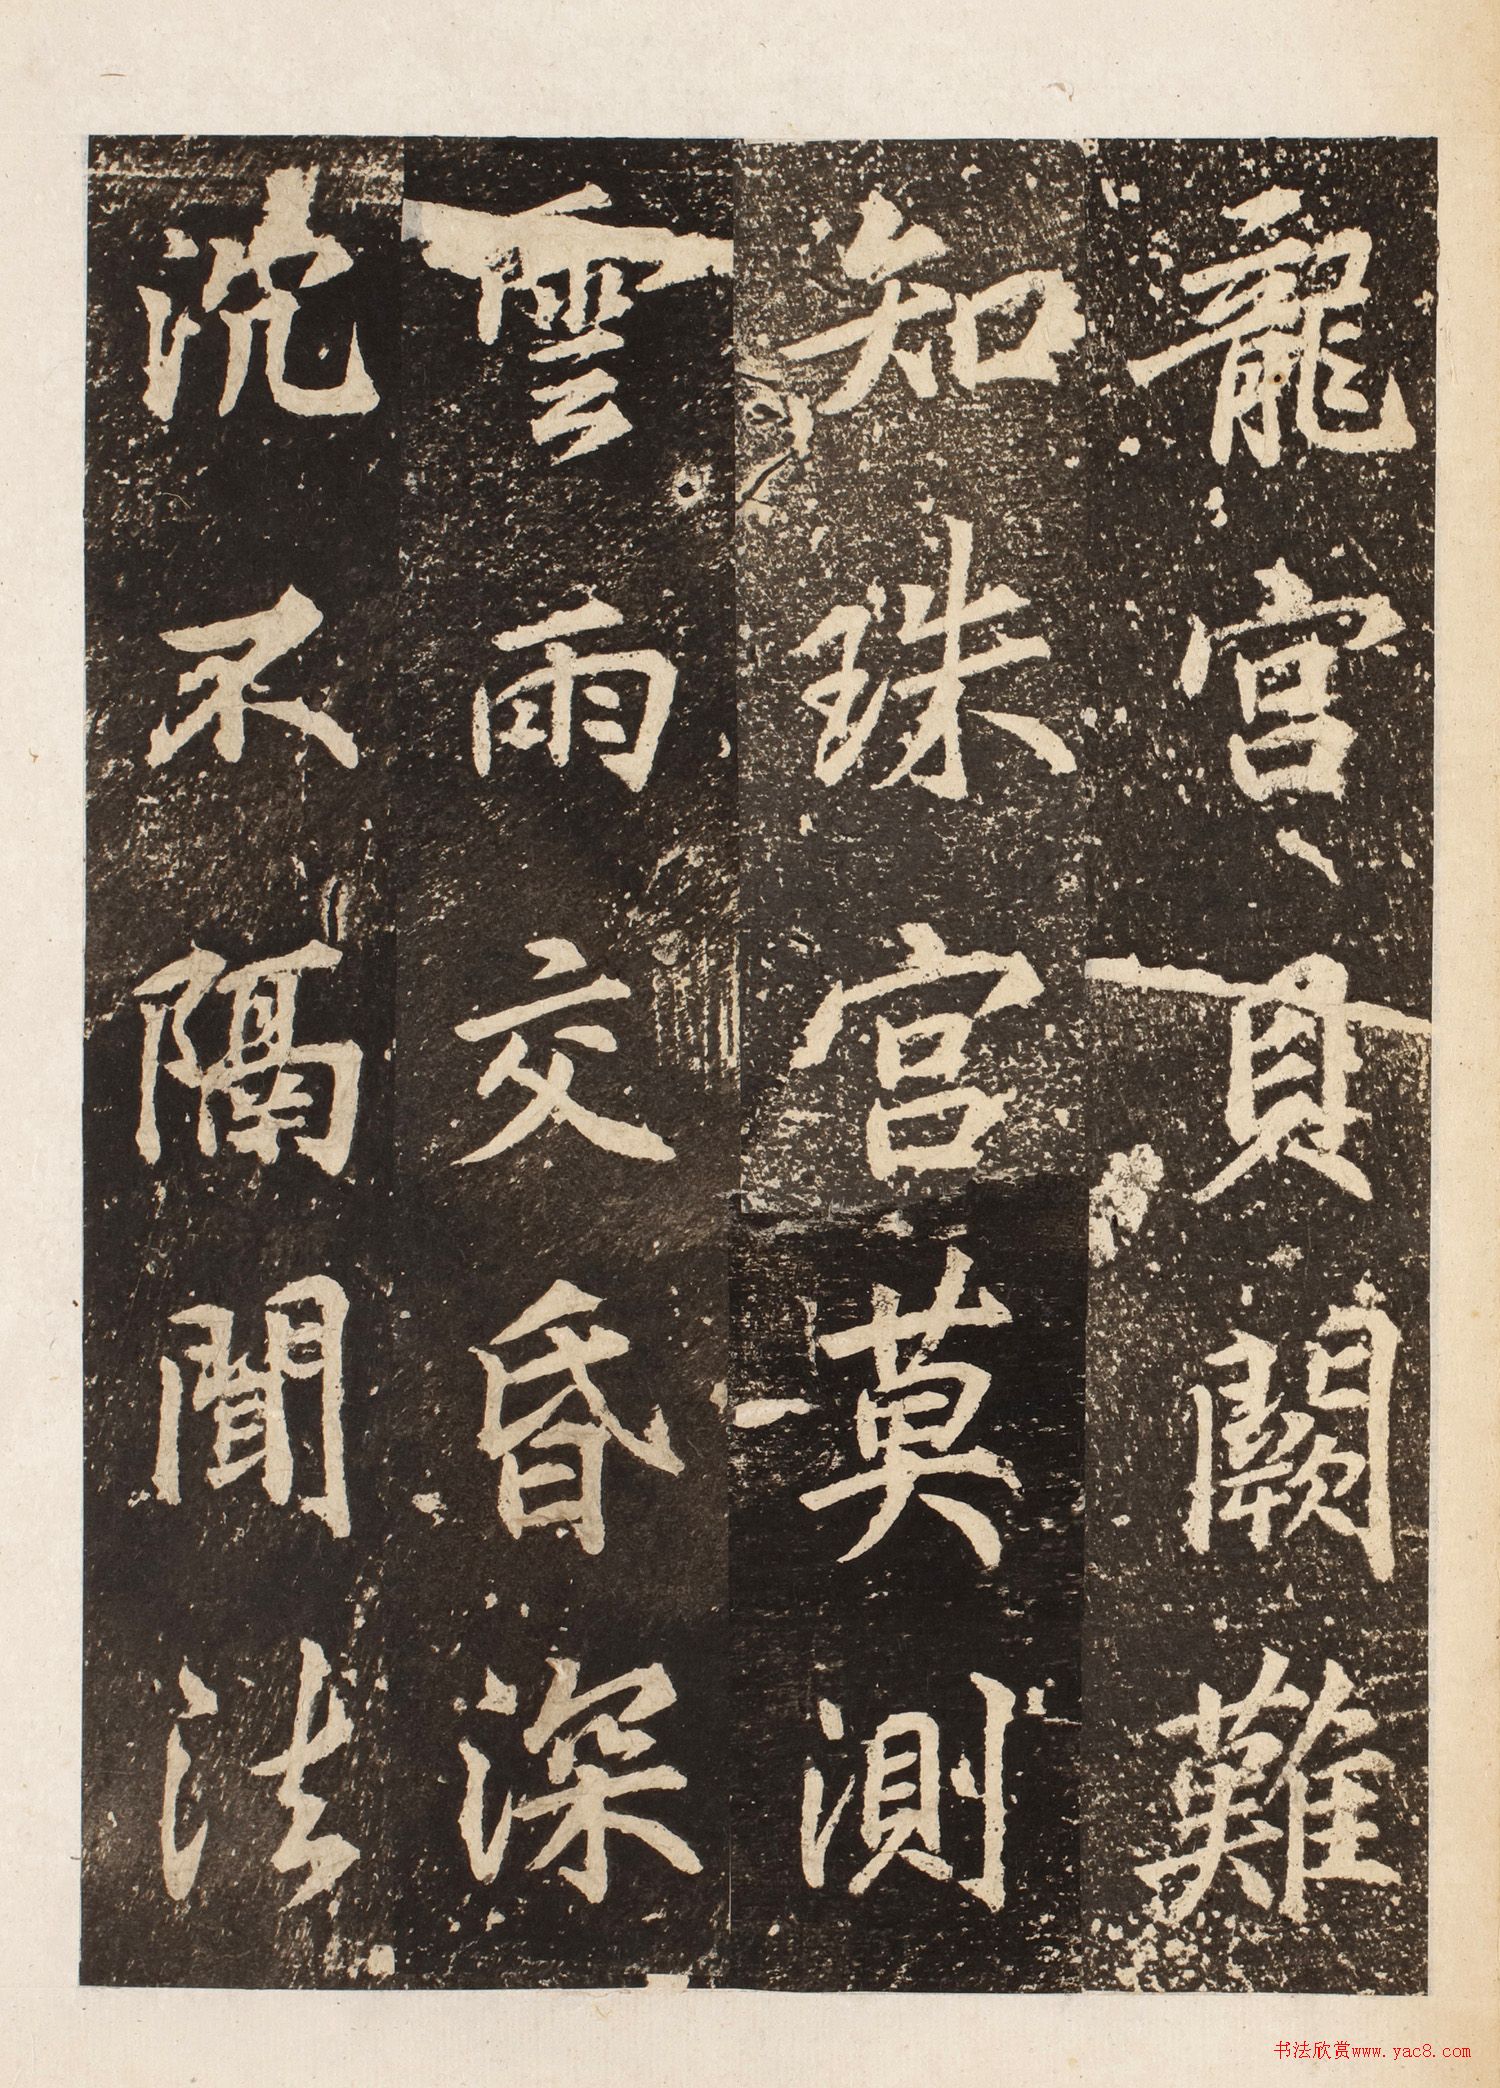 龍宮貝闕難
知珠宮莫測
雲雨交昏深
沈不隔聞法
书法欣赏www.yac8.com